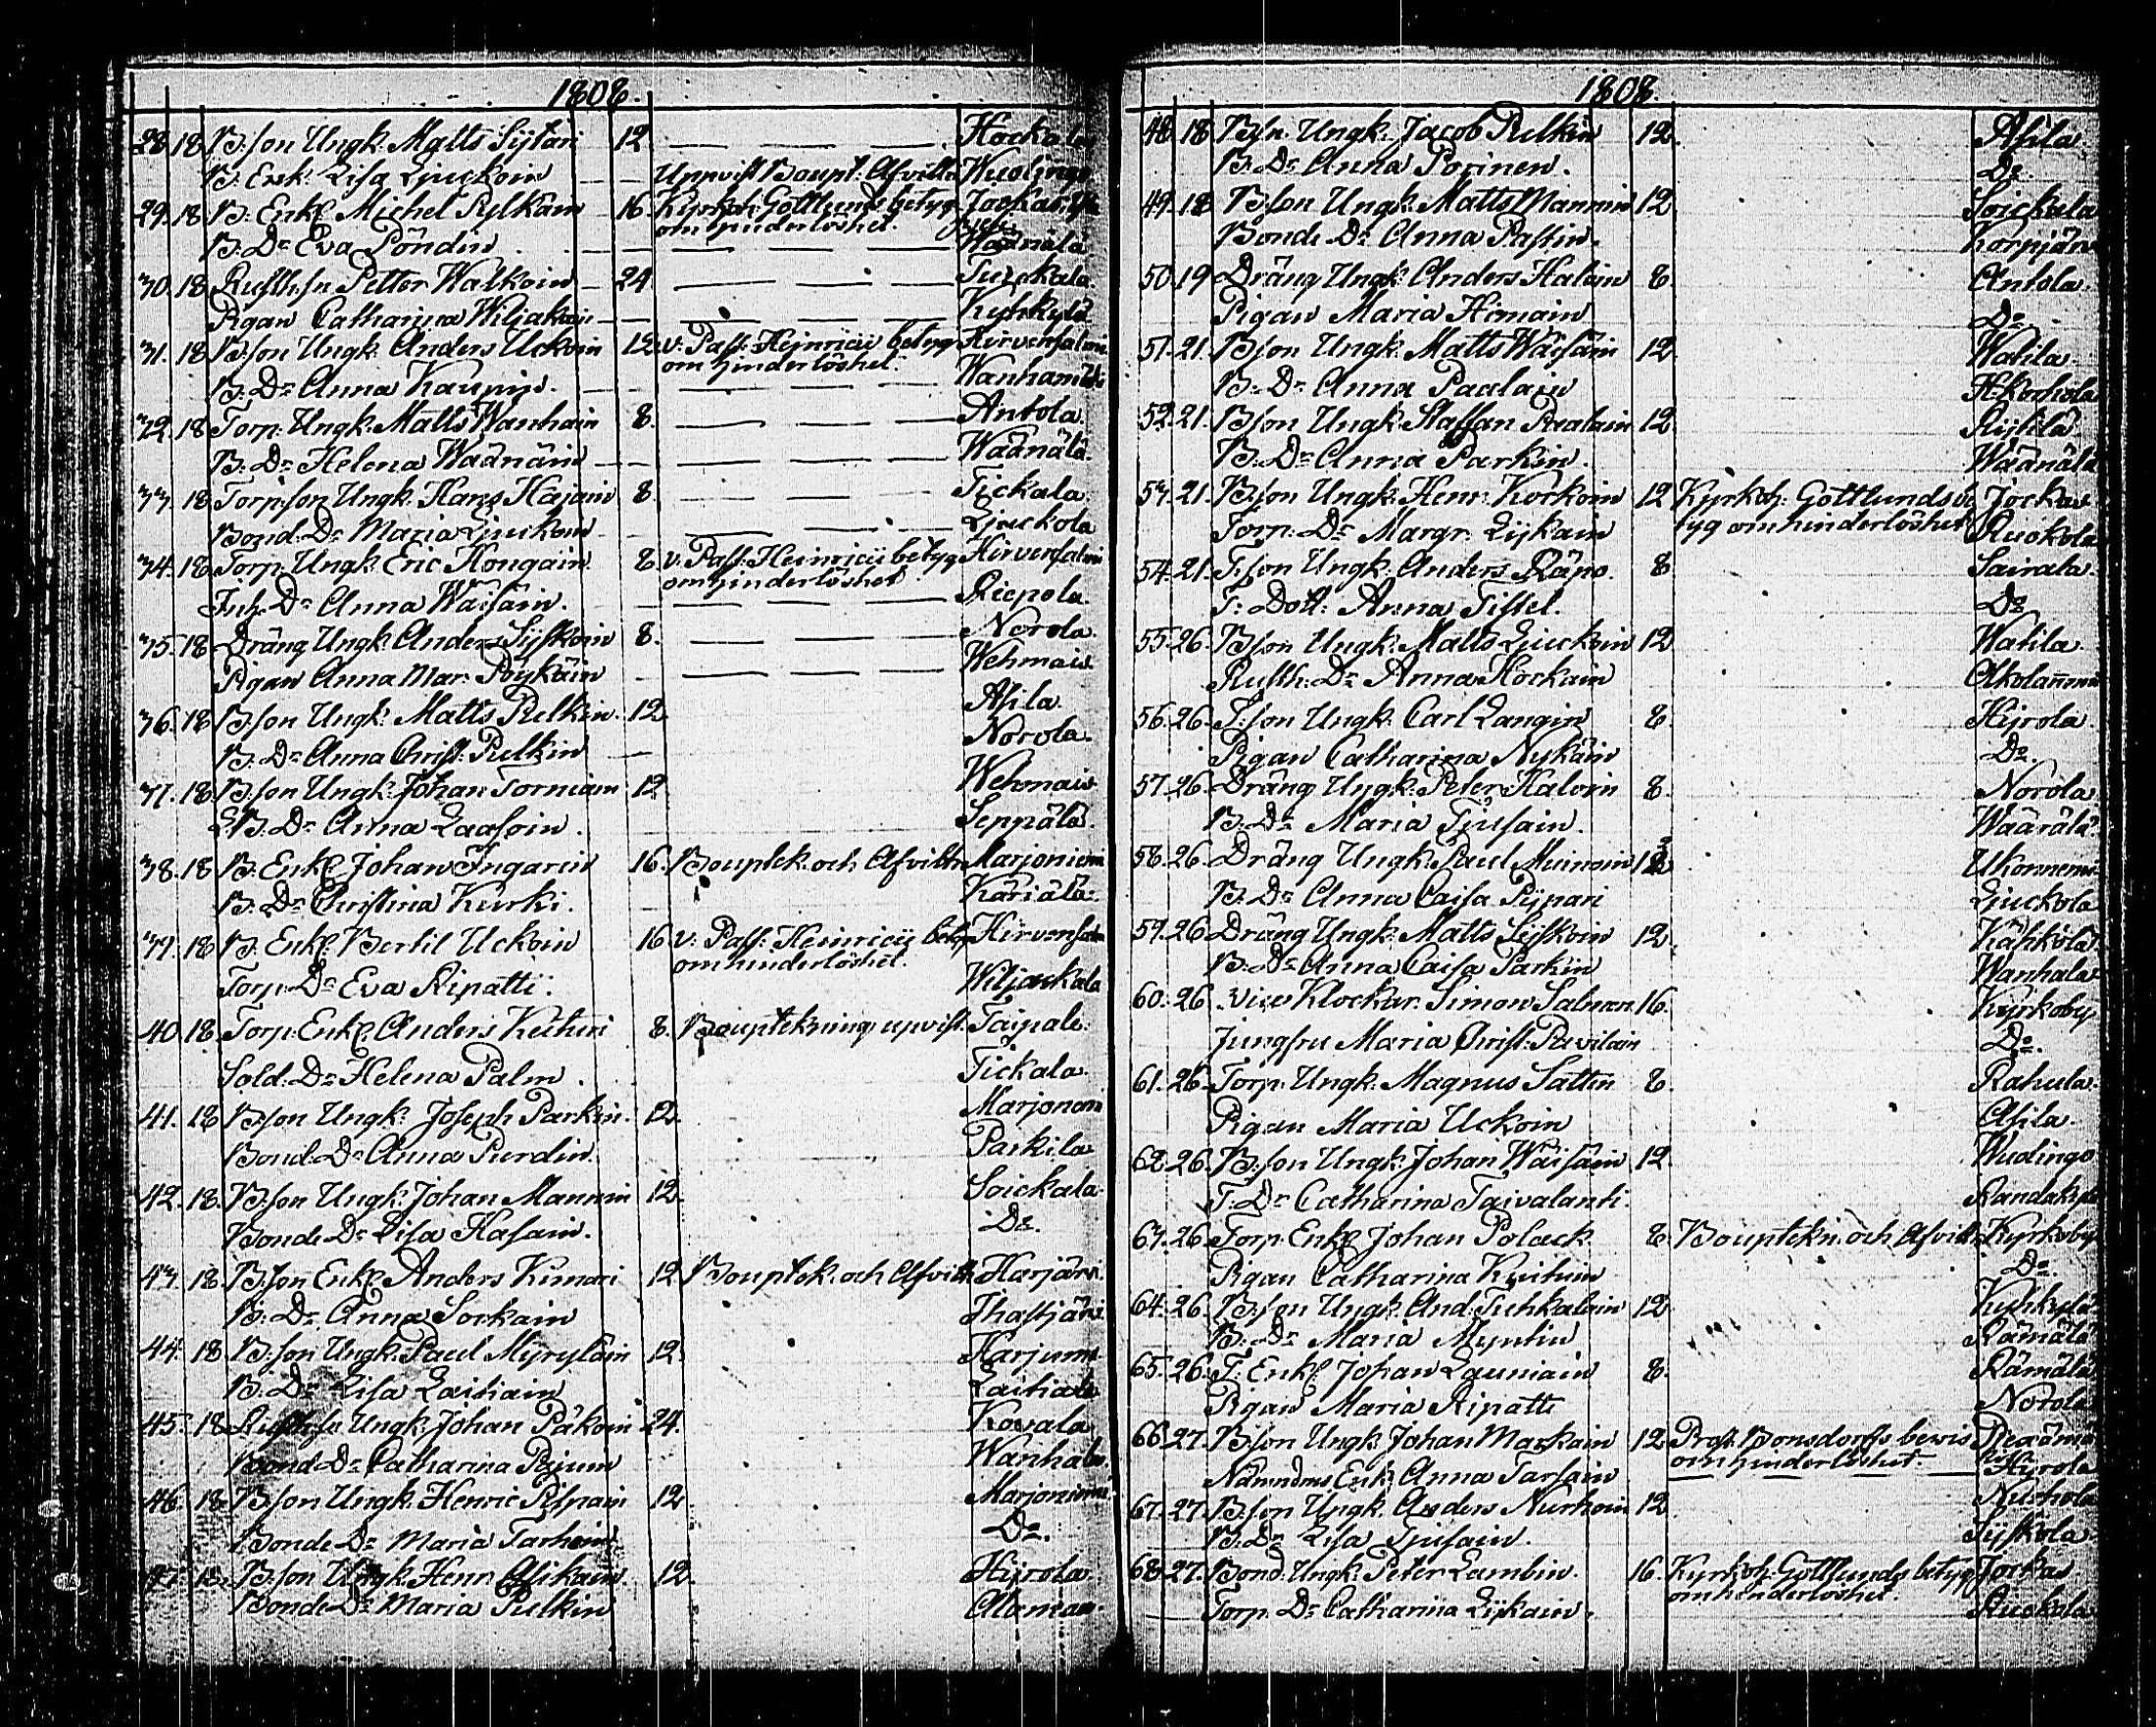 1808.
28. 18 B:son Ungk: Matts Sÿtäri 12 Hocka
B: Enk: Lisa Liuckoin Uppvist Boupt: Afvittr Wuolingo
29. 18. B: Enkl Michel Pulkäin 16. Kyrkoh: Gottlunds betyg Jockas
om hinderlöshet.
B: Dr Eva Pöndin Wäänälä
30. 18 Rusth:sn Petter Walkoin 24. Turckala.
Pigan Catharina Wiljakain Kyhkylä
31. 18 B:son Ungk: Anders Uckoin 12. v: Past: Heinricii betyg Hirvensalmi
om hinderlöshet.
B: Dr Anna Kaupin. Wanhamäki
32. 18 Torp: Ungk: Matts Wanhain 8. Antola.
B: Dr Helena Wäänäin Wäänälä.
33. 18 Torp:son Ungk: Hans Hajain 8. Tickala
Bond. Dr Maria Liuckoin Liuckola
34. 18 Torp: Ungk: Eric Hongain 8. v: Past: Heinricii betyg Hirvensalmi
om hinderlöshet
Inh: Dr Anna Waisäin. Riepola.
35. 18 Dräng Ungk: Anders Syskoin 8. Norola.
Pigan Anna Mar: Pöykäin Wehmais.
36. 18 B:son Ungk: Matts Pulkin. 12. Asila.
B: Dr Anna Christ: Pulkin Norola.
37. 18. B:son Ungk: Johan Torniain 12. Wehmais
B: Dr Anna Laasoin. Seppälä.
38. 18 B: Enkl Johan Ingarin 16. Bouptek. och Afvittr Marjoniemi
B: Dr Christina Kurki. Käriälä.
39. 18 B: Enkl Bertil Uckoin 16 v: Past: Heinricii betyg Hirvensalm
om hinderlöshet.
Torp: Dr Eva Ripatti. Wiljackala
40. 18 Torp: Enkl Anders Kuituri 8. Bouptekning uppvist. Taipale.
Sold: Dr Helena Palm. Tickala.
41. 18 B:son Ungk: Joseph Parkin. 12. Marjonem
Bond. Dr Anna Purdin. Parkila
42. 18. B:son Ungk: Johan Mannin 12. Soickala.
Bonde Dr Lisa Hasain. Do.
43. 18. B:son Enkl Anders Kunari 12 Bouptek. och Afvittr Harjärv.
B: Dr Anna Sorkain Thastjärv
44. 18. B:son Ungk: Paul Myryläin 12. Harjum
B. Dr Lisa Laitiain Laitiala
45. 18 Rusth:sn Ungk: Johan Päkoin 24. Kovala
Bonde Dr Catharina Pijum Wanhala
46. 18 B:son Ungk: Henric Pispain 12. Marjoniemi
Bonde Dr Maria Tarhein Do.
47. 18. B:son Ungk: Henr: Asikain. 12. Hijrola.
Bonde Dr Maria Pulkin Alamaa.
1808.
48. 18 B:sn Ungk: Jacob Pulkin 12. Asila
B. Dr Anna Porinen. Do.
49. 18 B:son Ungk: Matts Mannin 12 Soickala
Bonde Dr Anna Pastin. Korpjärv
50. 19 Dräng Ungk: Anders Halain 8. Antola.
Pigan Maria Himain Do.
51. 21. B:son Ungk: Matts Wäisäin 12. Watila.
B: Dr Anna Paalain H:korhola
52. 21. B:son Ungk: Staffan Paalain 12. Rytilä
B: Dr Anna Parkin. Wäänälä
53. 21. B:son Ungk: Henr: Korkoin 12 Kyrkoh: Gottlunds be Jockas
tyg om hinderlöshet
Torp: Dr Margr: Lÿkain Ruokola
54. 21. T:son Ungk: Anders Räpo. 8. Sairala.
T: Dott: Anna Tissel. Do
55. 26. B:son Ungk: Matts Liuckoin 12 Watila.
Rusth: Dr Anna Hockain Olkolanniemi
56. 26. T:son Ungk: Carl Langin 8. Hijrola.
Pigan Catharina Nykäin Do.
57. 26. Dräng Ungk: Peter Haloin 8. Norola
B: Dr Maria Tiusain. Wäärälä
58. 26. Dräng Ungk: Paul Muinoin Ukonniemi
B: Dr Anna Caisa Pijpari Liuckola
59. 26 Dräng Ungk: Matts Syskoin 12. Käskölä
B: Dr Anna Caisa Parkin Wanhala
60. 26. vice Klockar. Simon Salmen 16. Kyrkoby
Jungfru Maria Christ: Pavilain Do.
61. 26. Torp: Ungk: Magnus Satten 8. Rahula.
Pigan Maria Uckoin Asila.
62. 26. B:son Ungk: Johan Wäisäin 12. Wuolingo
T: Dr Catharina Taivalanti. Randakyl
63. 26 Torp: Enkl Johan Polack 8. Bouptekn: och Afvittr Kyrkoby
Pigan Catharina Kuituin Do.
64. 26. B:son Ungk: And: Tuhkalain 12 Kyhkylä
B: Dr Maria Myntin Rämälä
65. 26. T: Enkl Johan Laumain 8. Rämälä
Pigan Maria Ripatti Norola
66. 27. B:son Ungk: Johan Markain 12. Prost: Bonsdorffs bevis
om hinderlöshet.
Nämndms Enk: Anna Tarsain Hyrola
67. 27. B:son Ungk: Anders Nurhoin 12. Nuhola
B: Dr Lisa Tiusain. Syskola
68. 27. Bond. Ungk: Peter Lambin. 16. Kyrkoh: Gottlunds betyg Jockas
om hinderlöshet.
Torp: Dr Catharina Lÿkain. Ruokola